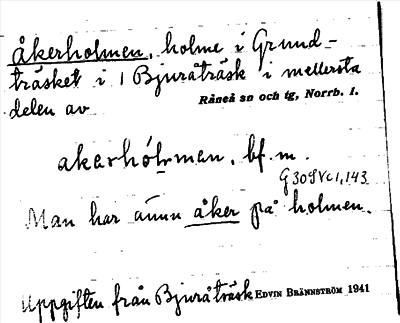 åkerholmen, holme i Grund-
träsket i 1 Bjuråträsk i mellersta
delen av
Råneå sn och tg, Norrb. l.
akerhólmen, bf. m.
Man har ännu åker på holmen.
Uppgiften från Bjuråträsk EDVIN BRÄNNSTRÖM 1941